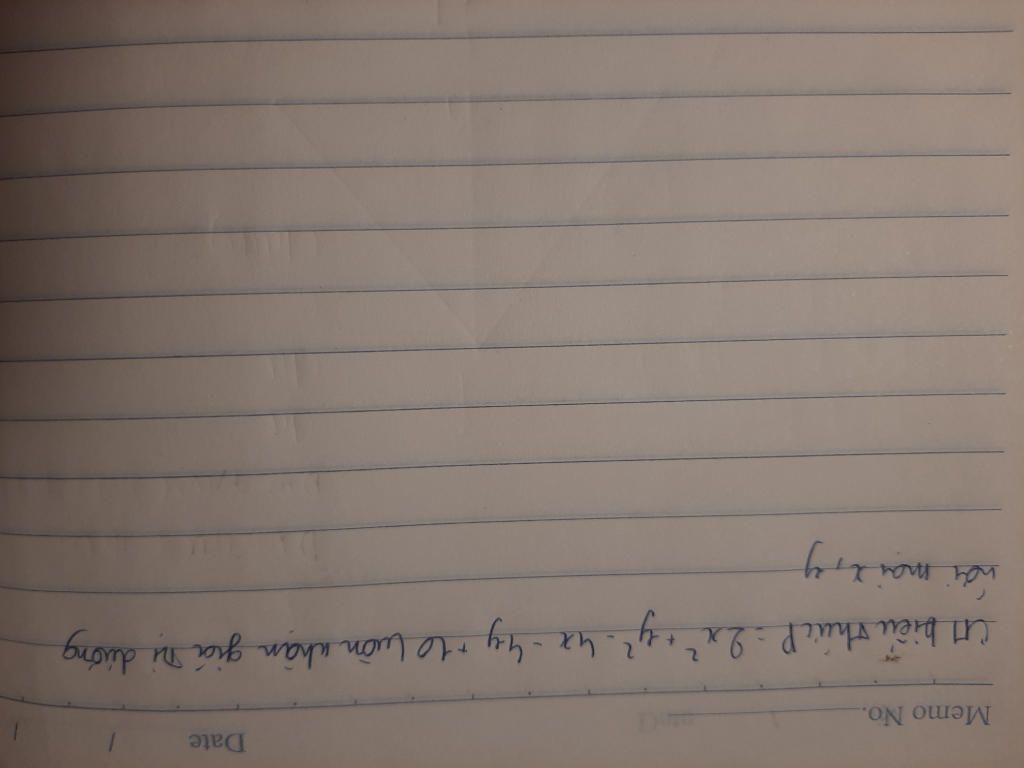 Memo No. Date / /
CM biểu thức P = 2x² + y² - 4x - 4y + 10 luôn nhận giá trị dương
với mọi x, y